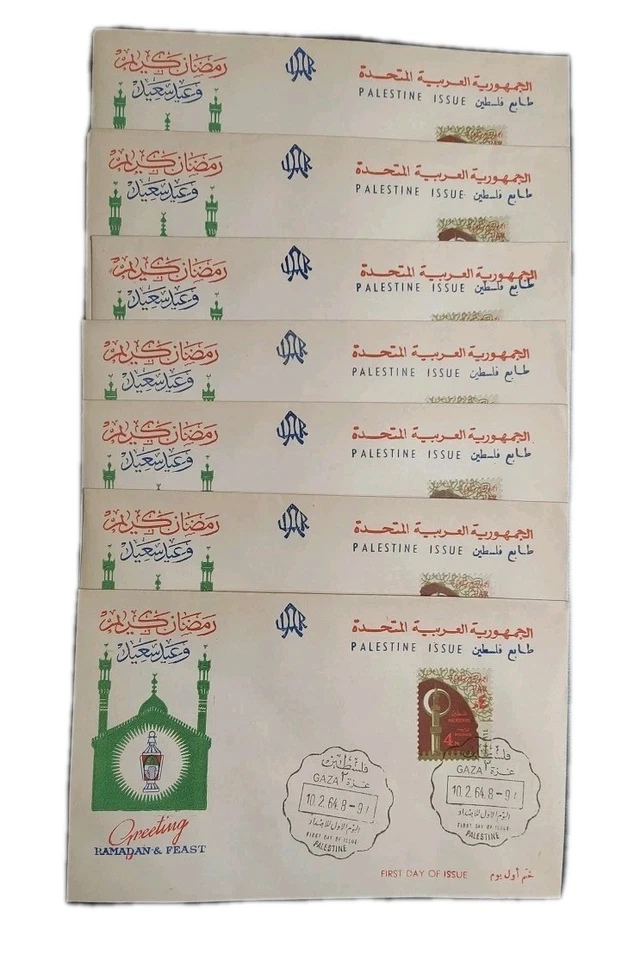 رمضان كريم
وعيد سعيد
UAR
الجمهورية العربية المتحدة
PALESTINE ISSUE طابع فلسطين
رمضان كريم
وعيد سعيد
UAR
الجمهورية العربية المتحدة
PALESTINE ISSUE طابع فلسطين
رمضان كريم
وعيد سعيد
UAR
الجمهورية العربية المتحدة
PALESTINE ISSUE طابع فلسطين
رمضان كريم
وعيد سعيد
UAR
الجمهورية العربية المتحدة
PALESTINE ISSUE طابع فلسطين
رمضان كريم
وعيد سعيد
UAR
الجمهورية العربية المتحدة
PALESTINE ISSUE طابع فلسطين
رمضان كريم
وعيد سعيد
UAR
الجمهورية العربية المتحدة
PALESTINE ISSUE طابع فلسطين
رمضان كريم
وعيد سعيد
UAR
الجمهورية العربية المتحدة
PALESTINE ISSUE طابع فلسطين
UAR
4
PALESTINE
فلسطين
غزة ٢
GAZA
10.2.64.8-9
اليوم الاول للاصدار
FIRST DAY OF ISSUE
PALESTINE
فلسطين
غزة ٢
GAZA
10.2.64.8-9
اليوم الاول للاصدار
FIRST DAY OF ISSUE
PALESTINE
Greeting
RAMADAN & FEAST
FIRST DAY OF ISSUE ختم أول يوم